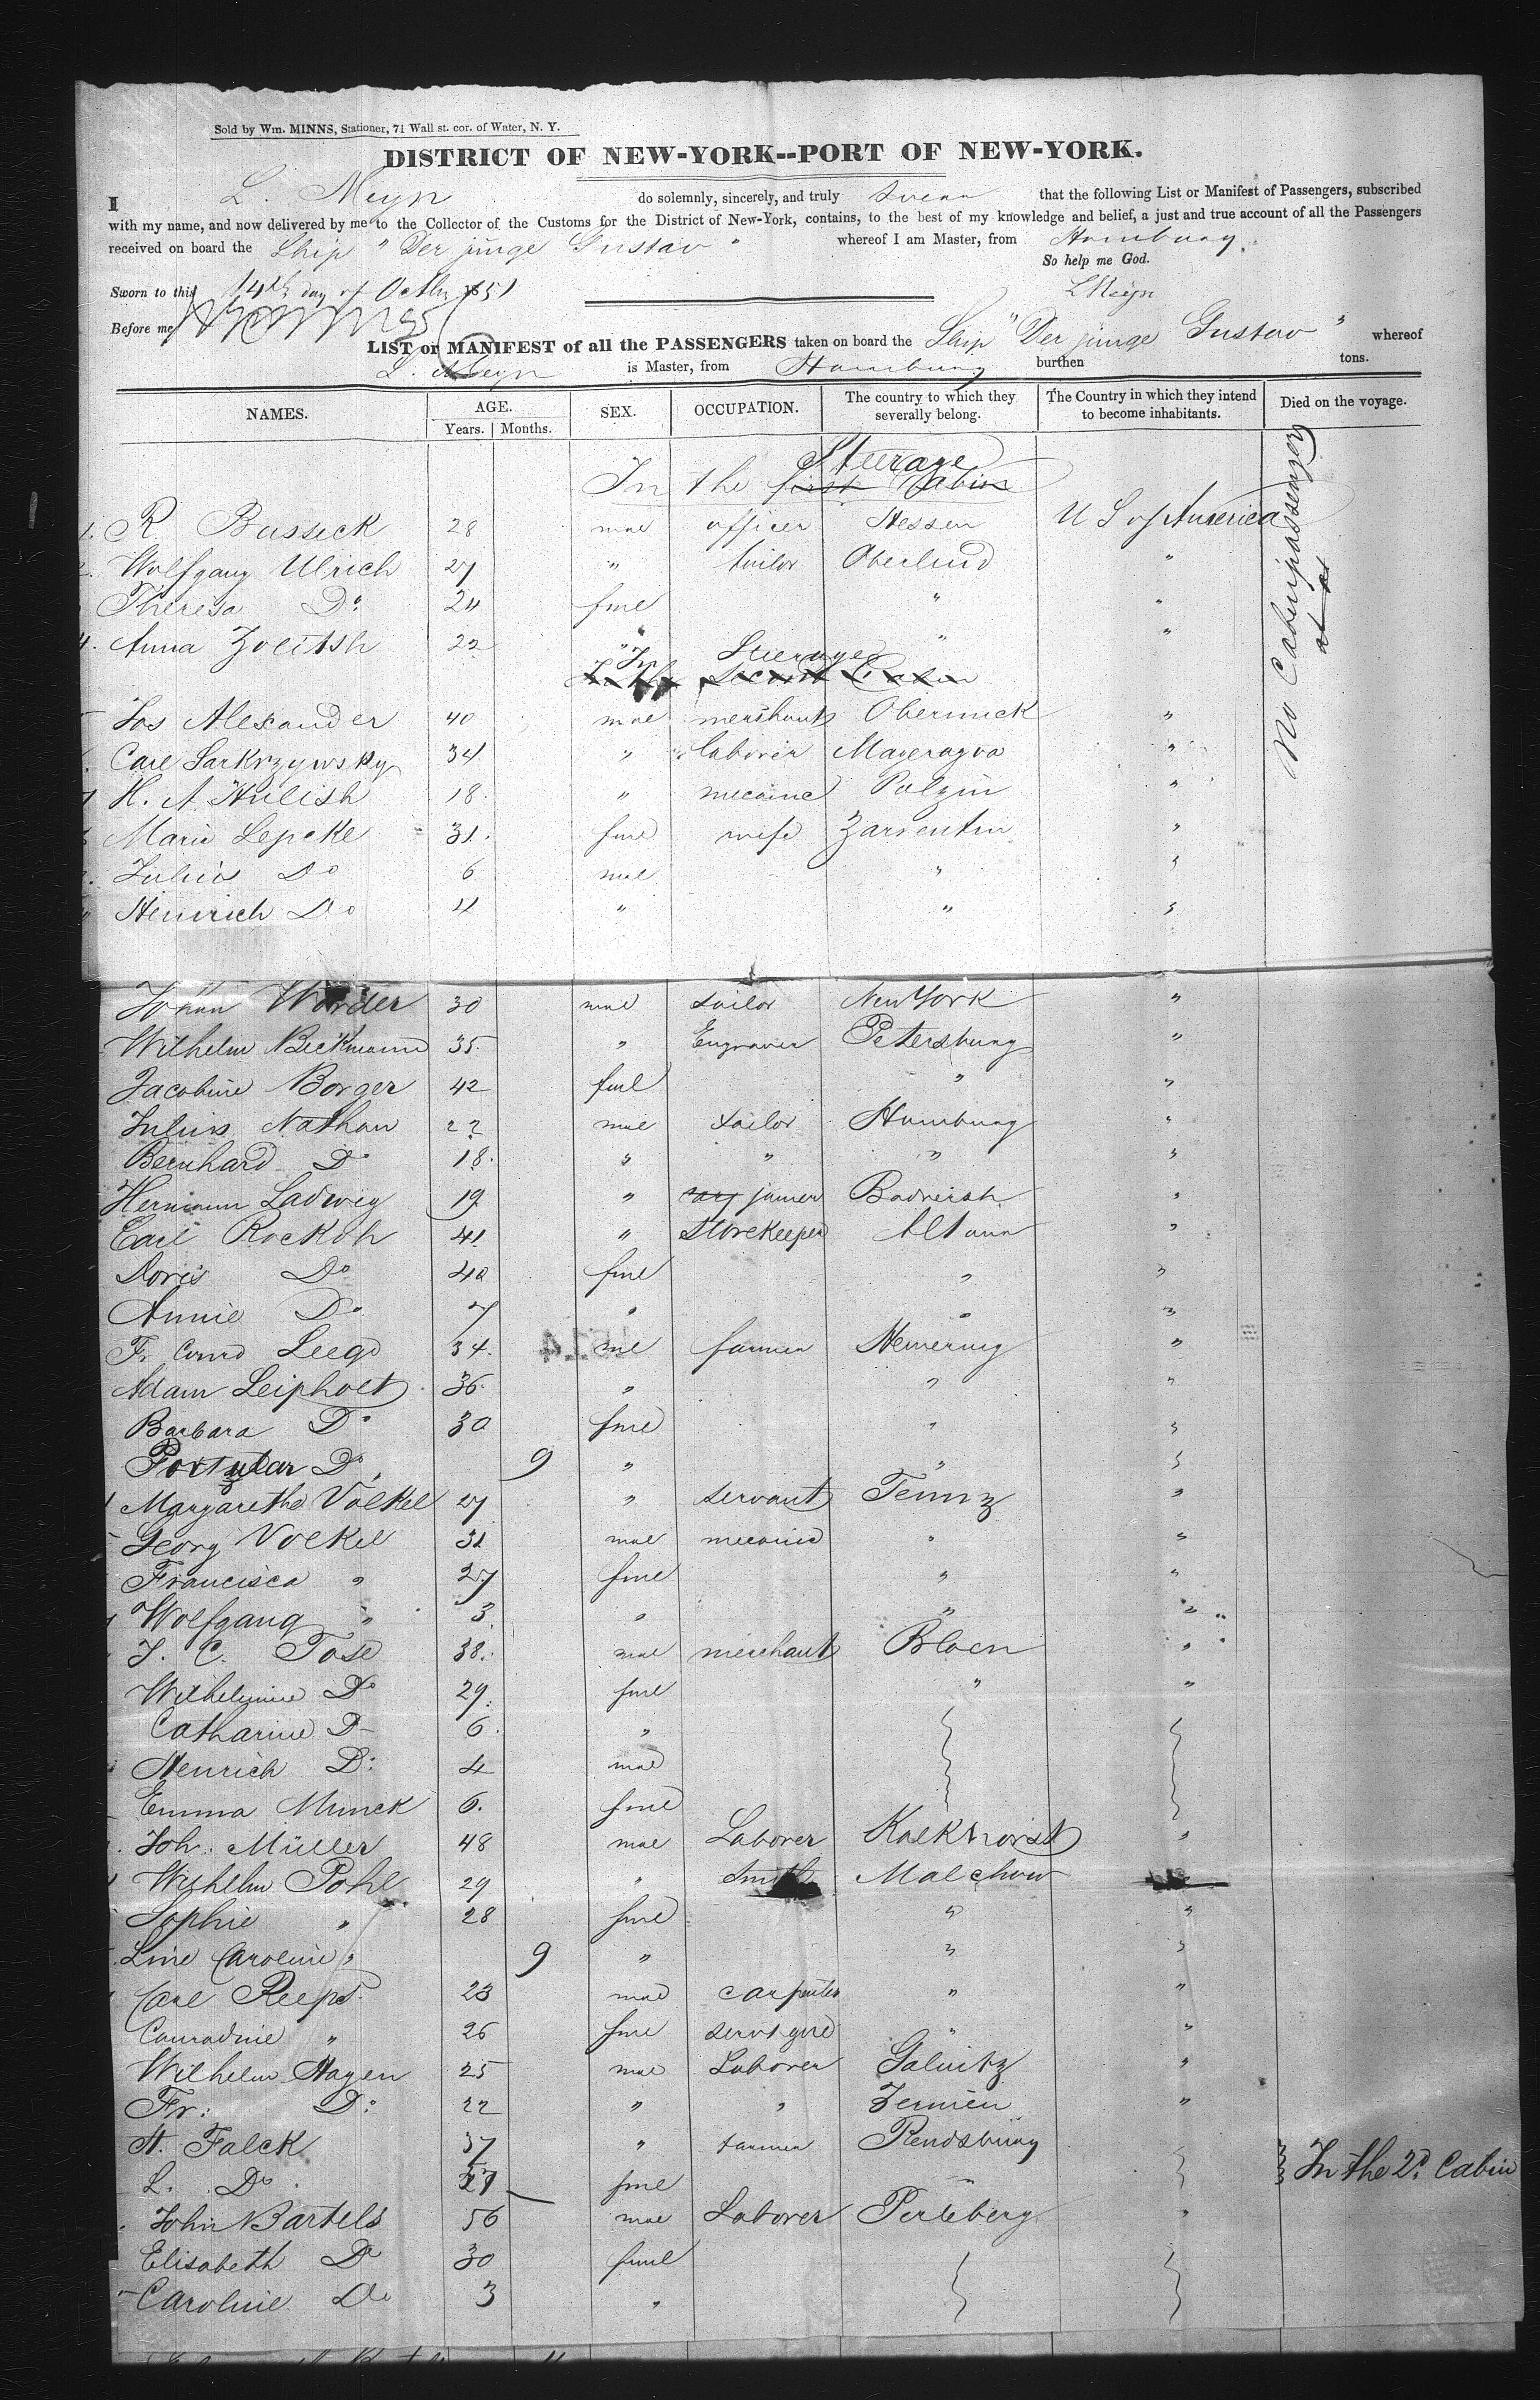 Sold by Wm. MINNS, Stationer, 71 Wall st. cor. of Water, N. Y.
DISTRICT OF NEW-YORK--PORT OF NEW-YORK.
I L. Meyn do solemnly, sincerely, and truly swear that the following List or Manifest of Passengers, subscribed
with my name, and now delivered by me to the Collector of the Customs for the District of New-York, contains, to the best of my knowledge and belief, a just and true account of all the Passengers
received on board the Ship "Der junge Gustav" whereof I am Master, from Hamburg.
So help me God.
Sworn to this 14th day of Octbr 1851 L Meyn
Before me
LIST or MANIFEST of all the PASSENGERS taken on board the Ship "Der junge Gustav" whereof
L. Meyn is Master, from Hamburg burthen tons.
NAMES. AGE. Years. Months. SEX. OCCUPATION. The country to which they severally belong. The Country in which they intend to become inhabitants. Died on the voyage.
Steerage
In the first Cabin
R. Busseck 28 mal officer Hessen U S of America
Wolfgang Ulrich 27 " tailor "
Theresa Do 24 fml " "
4. Anna Zolitsh 22 " " "
In Steerage
No Cabinpassengers
Jos Alexander 40 mal merchant "
Carl Sarkrzywsky 34 " laborer "
H. A. 18 " mecanic Polzin "
Marie Lepcke 31. fml wife Zarrentin "
Julius Do 6 mal " "
Heinrich Do 4 " " "
Johan Warder 30 mal tailor New York "
Wilhelm Beckmann 35 " Engraver Petersburg "
Jacobine Borger 42 fml " "
Julius Nathan 22 mal tailor Hamburg "
Bernhard Do 18. " " " "
Hermann Ladwig 19 " joiner "
Carl Rockoh 41 " Storekeeper Altona "
Doris Do 40 fml " "
Annie Do 7 " " "
Fr Conrd Leego 34. ml farmer "
Adam Leipholt 36. " " "
Barbara Do 30 fml " "
Do 9 " " "
Margaretha Volkel 27 " servant "
Georg Volkel 31 mal mecanic " "
Francisca " 27 fml " "
Wolfgang " 3 " " "
J. C. Tose 38. mal merchant "
Wilhelmine Do 29. fml " "
Catharine Do 6. "
Henrich Do 4 mal
Emma Munck 6. fml
Joh. Müller 48 mal Laborer Kalkhorst "
Wilhelm Pohl 29 " Smith Malchow
Sophie " 28 fml " "
Line Caroline " 9 " " "
Carl Reeps. 23 mal carpenter " "
Conradine " 26 fml " "
Wilhelm Hagen 25 mal Laborer "
Fr: Do 22 " " "
H. Falck 37 " farmer Rendsburg
L. Do 27 fml In the 2d Cabin
John Bartels 56 mal Laborer Perleberg "
Elisabeth Do 30 fml
Caroline Do 3 "